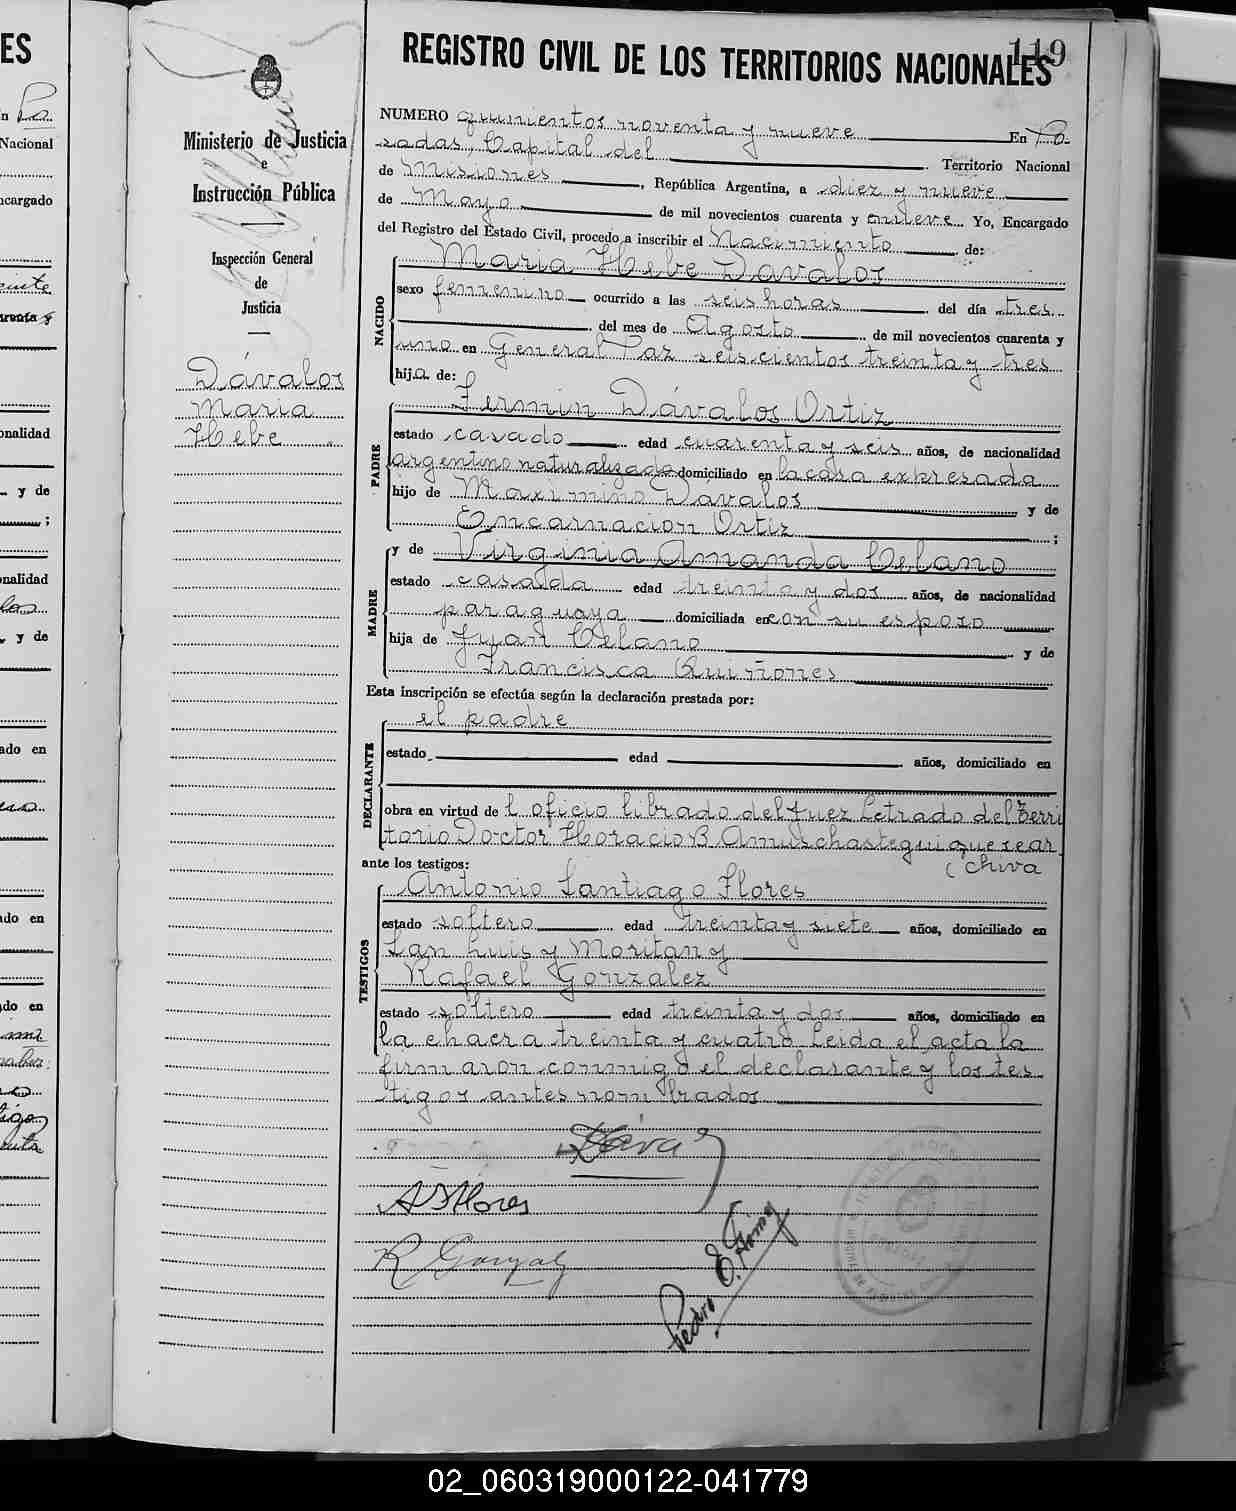 119
REGISTRO CIVIL DE LOS TERRITORIOS NACIONALES
Ministerio de Justicia
e
Instrucción Pública
Inspección General
de
Justicia
Dávalos
Maria
Hebe
NUMERO quinientos noventa y nueve En Po-
sadas, Capital del Territorio Nacional
de Misiones, República Argentina, a diez y nueve
de Mayo de mil novecientos cuarenta y nueve Yo, Encargado
del Registro del Estado Civil, procedo a inscribir el Nacimiento de:
NACIDO
Maria Hebe Davalos
sexo femenino ocurrido a las seis horas del día tres
del mes de Agosto de mil novecientos cuarenta y
uno en General Paz seiscientos treinta y tres
hija de:
PADRE
Fermin Dávalos Ortiz
estado casado edad cuarenta y seis años, de nacionalidad
argentino naturalizado domiciliado en la casa expresada
hijo de Maximino Davalos y de
Encarnacion Ortiz ;
MADRE
y de Virginia Amanda Velano
estado casada edad treinta y dos años, de nacionalidad
paraguaya domiciliada en con su esposo
hija de Juan Velano y de
Francisca Quiñones
Esta inscripción se efectúa según la declaración prestada por:
DECLARANTE
el padre
estado edad años, domiciliado en
obra en virtud de l oficio librado del Juez Letrado del Terri
torio Doctor Horacio B. Amuschastegui que se ar
(chiva
ante los testigos:
TESTIGOS
Antonio Santiago Flores
estado soltero edad treinta y siete años, domiciliado en
San Luis y Moritan y
Rafael Gonzalez
estado soltero edad treinta y dos años, domiciliado en
la chacra treinta y cuatro Leida el acta la
firmaron conmigo el declarante y los tes
tigos antes nombrados
A S Flores
R Gonzalz
Pedro E. Gómez
ES
Nacional
ncargado
onalidad
y de
;
nalidad
y de
ado en
do en
do en
02_060319000122-041779